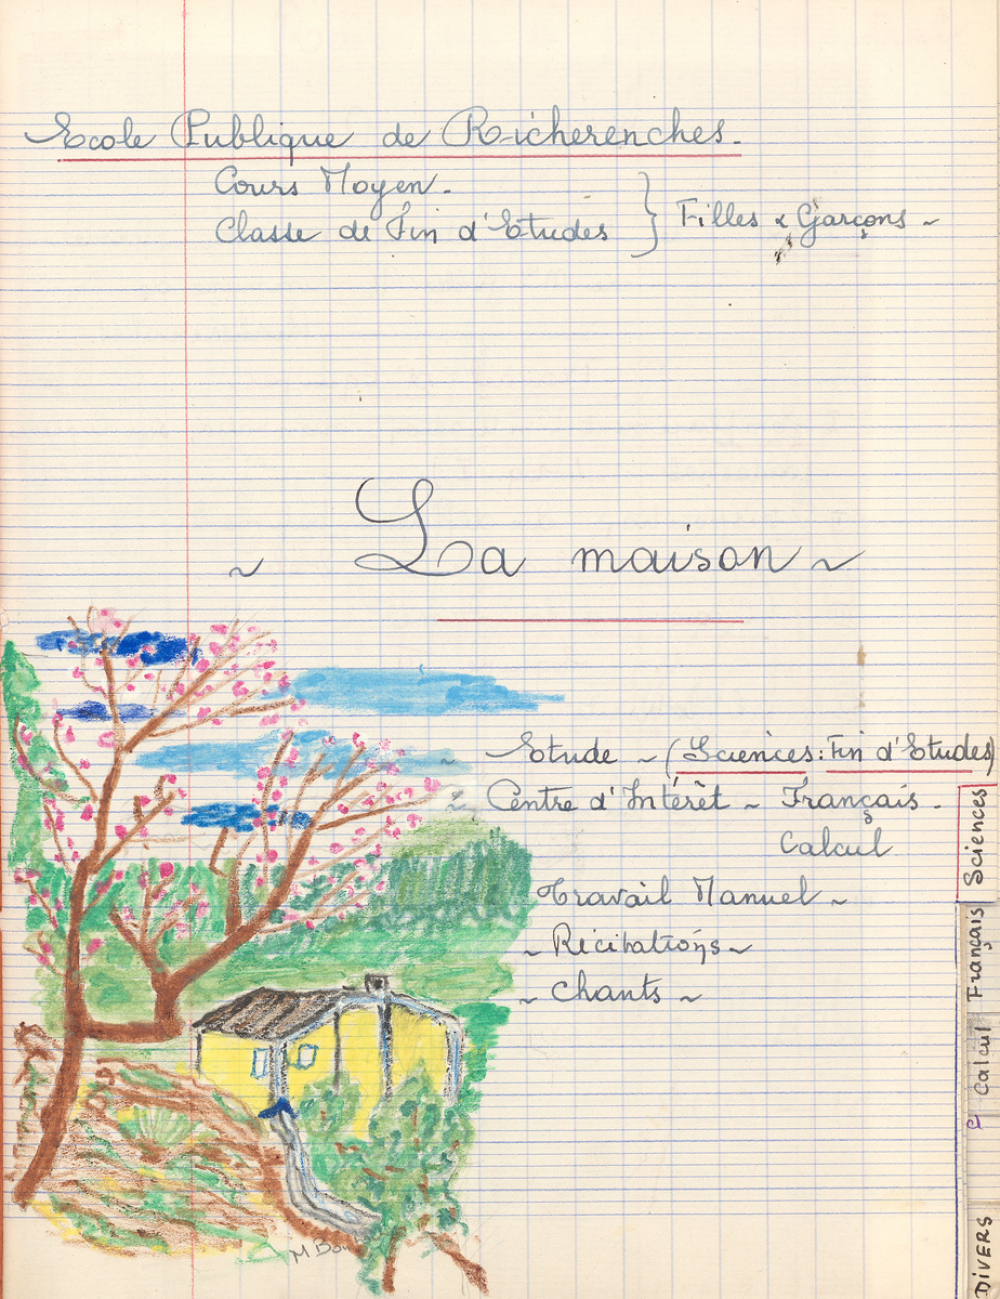 Ecole Publique de Richerenches.
Cours Moyen.
Classe de Fin d'Etudes } Filles & Garçons ~
~ La maison ~
~ Etude ~ (Sciences: Fin d'Etudes)
~ Centre d'Intérêt ~ Français.
Calcul
Travail Manuel ~
~ Récitations ~
~ Chants ~
Sciences
Français
Calcul
DIVERS
M